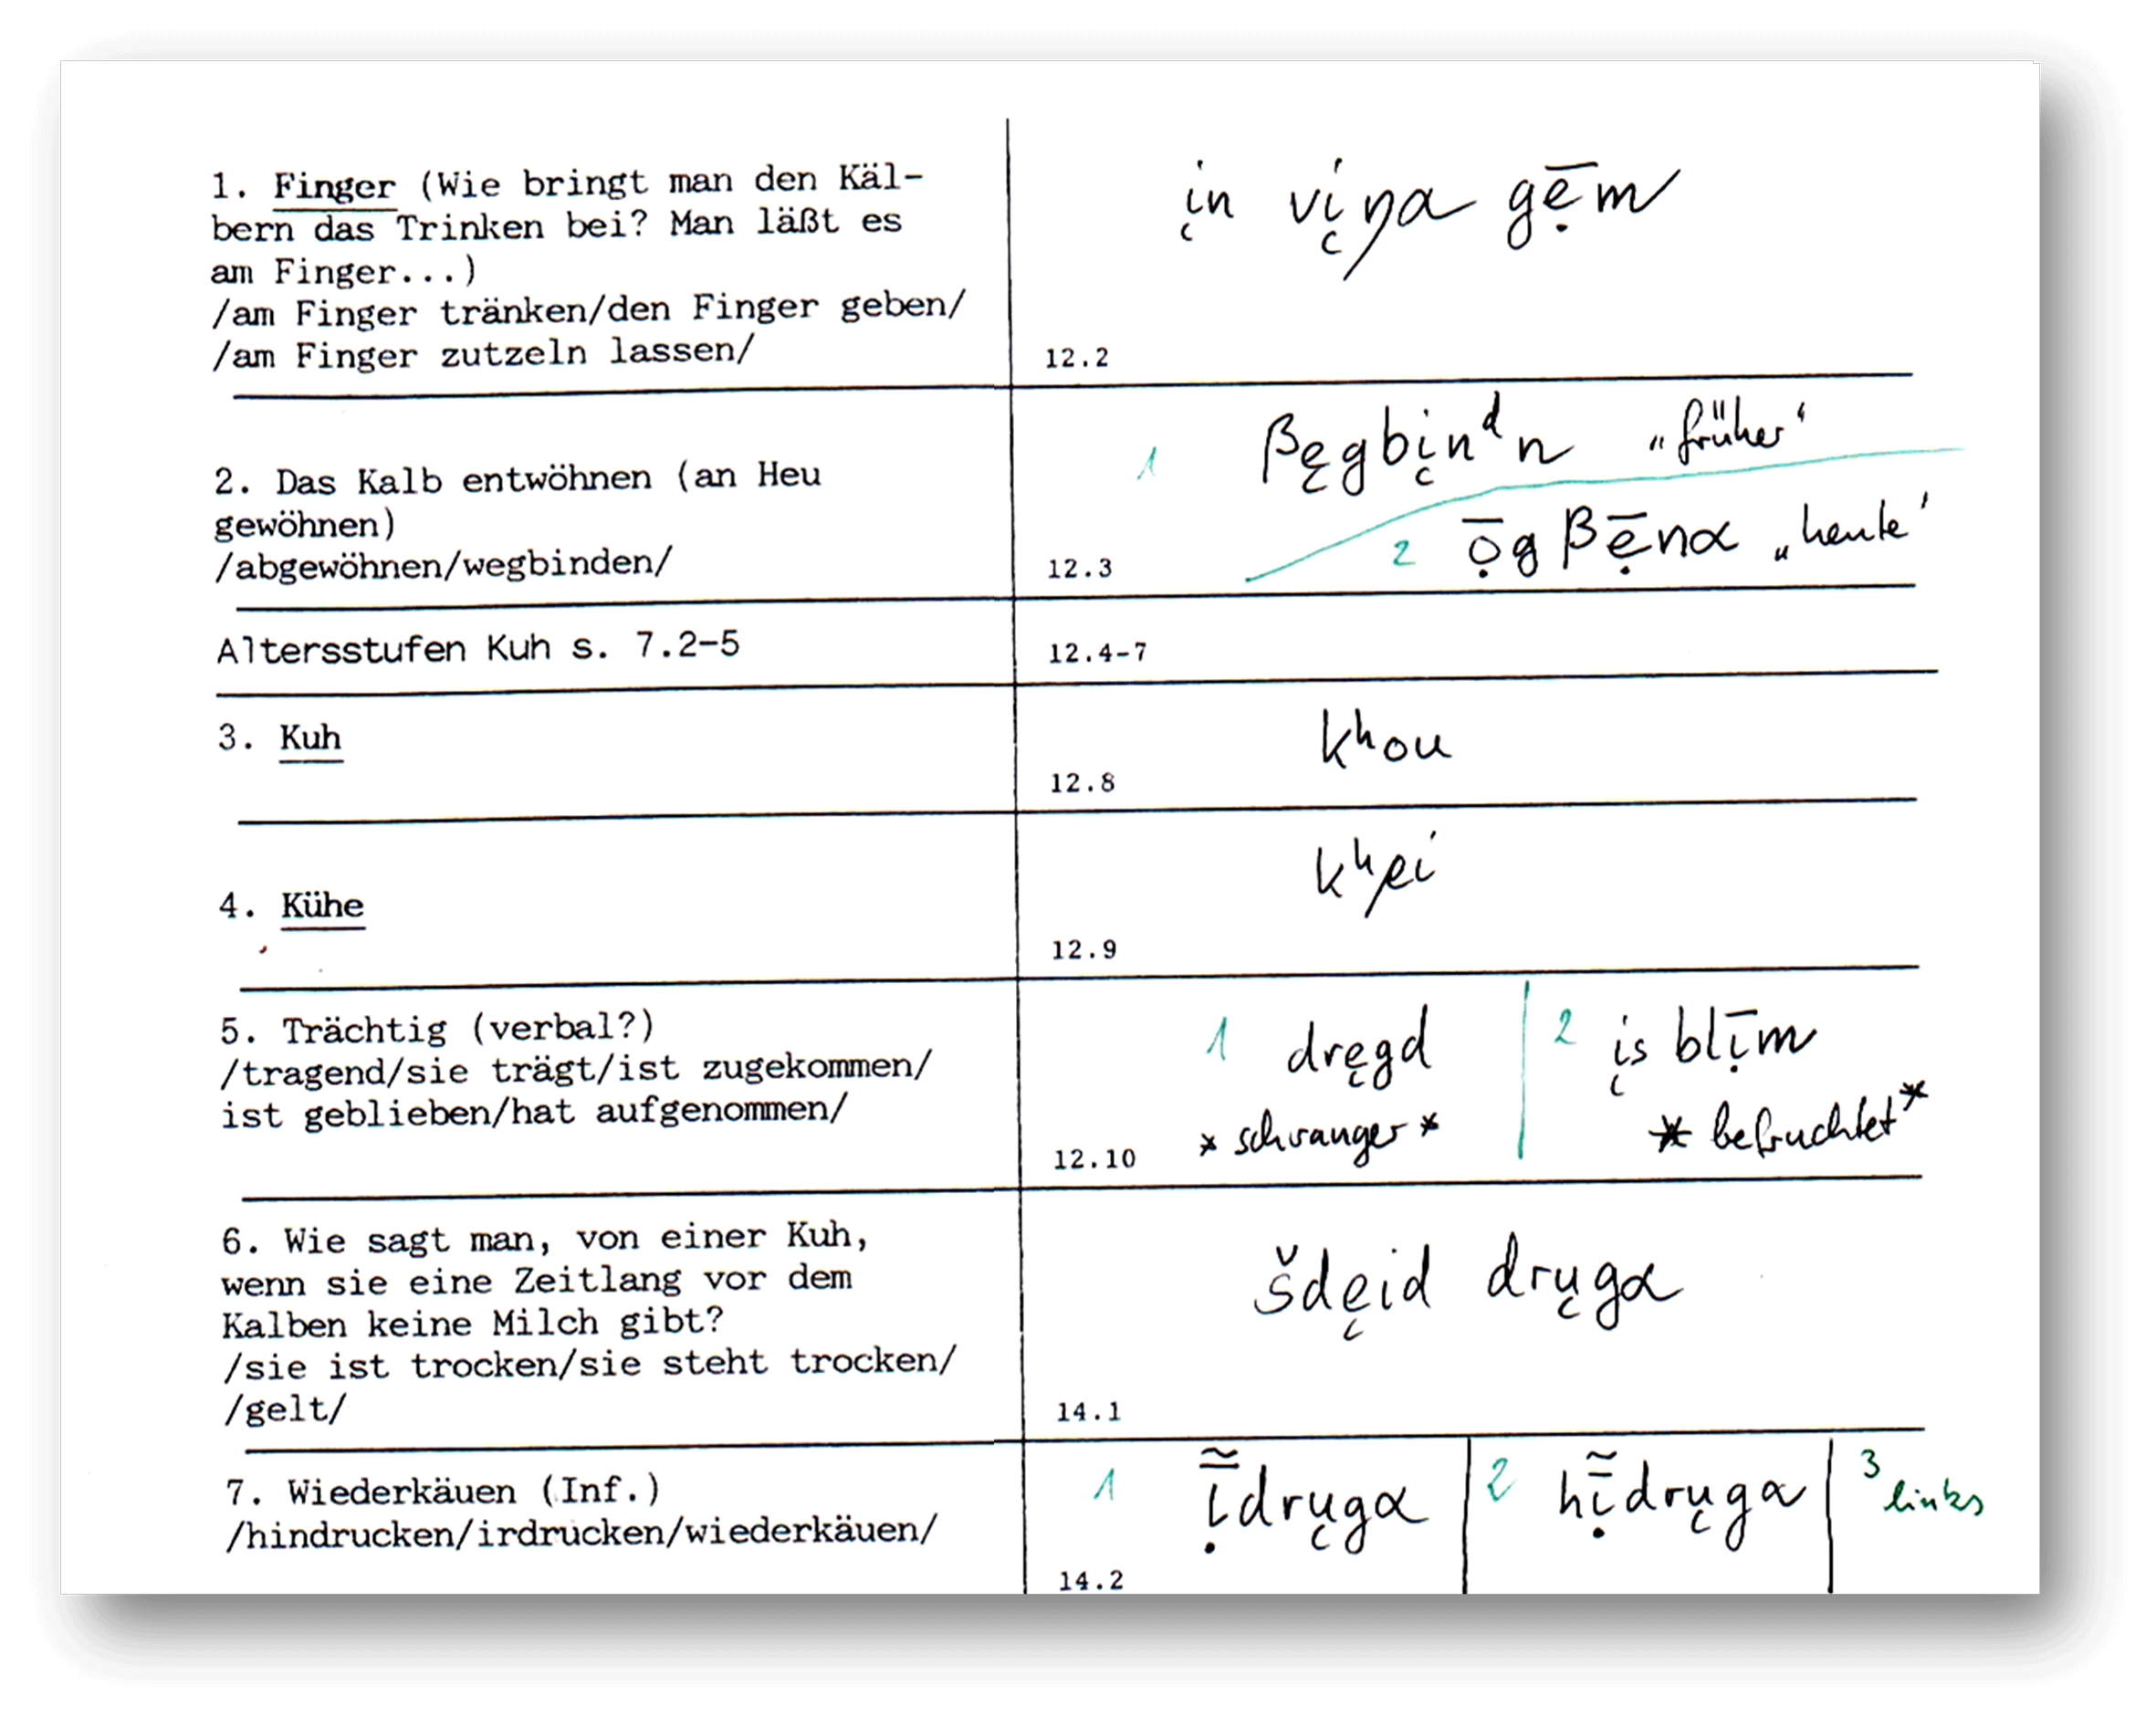 1. Finger (Wie bringt man den Käl-
bern das Trinken bei? Man läßt es
am Finger...)
/am Finger tränken/den Finger geben/
/am Finger zutzeln lassen/
12.2
i̜n vi̜ŋα gẹ̄m
2. Das Kalb entwöhnen (an Heu
gewöhnen)
/abgewöhnen/wegbinden/
12.3
1 βe̜gbi̜nᵈn „früher“
2 ọ̄gβẹ̄nα „heute“
Altersstufen Kuh s. 7.2-5
12.4-7
3. Kuh
12.8
kʰou
4. Kühe
12.9
kʰei
5. Trächtig (verbal?)
/tragend/sie trägt/ist zugekommen/
ist geblieben/hat aufgenommen/
12.10
1 dre̜gd
* schwanger *
2 i̜s blị̄m
* befruchtet *
6. Wie sagt man, von einer Kuh,
wenn sie eine Zeitlang vor dem
Kalben keine Milch gibt?
/sie ist trocken/sie steht trocken/
/gelt/
14.1
šde̜id dru̜gα
7. Wiederkäuen (Inf.)
/hindrucken/irdrucken/wiederkäuen/
14.2
1 ị̄̃dru̜gα
2 hị̄̃dru̜gα
3 links